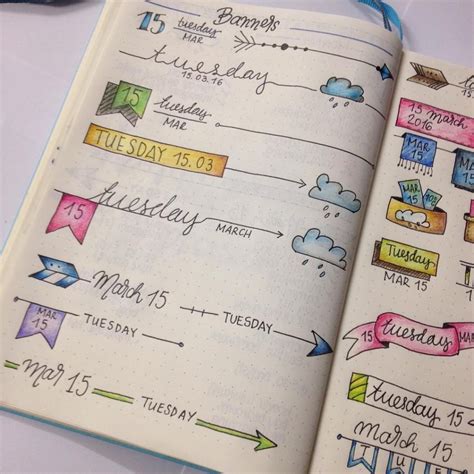 Banners
15 tuesday
MAR
tuesday
15.03.16
15 tuesday
MAR
TUESDAY 15.03
15 tuesday
MARCH
March 15
TUESDAY
MAR
15
TUESDAY
mar 15
TUESDAY
15.
15 march
2016
MAR
15
MAR
15
Tuesday
MAR 15
15 tuesday MAR
tuesday 15
MAR 15